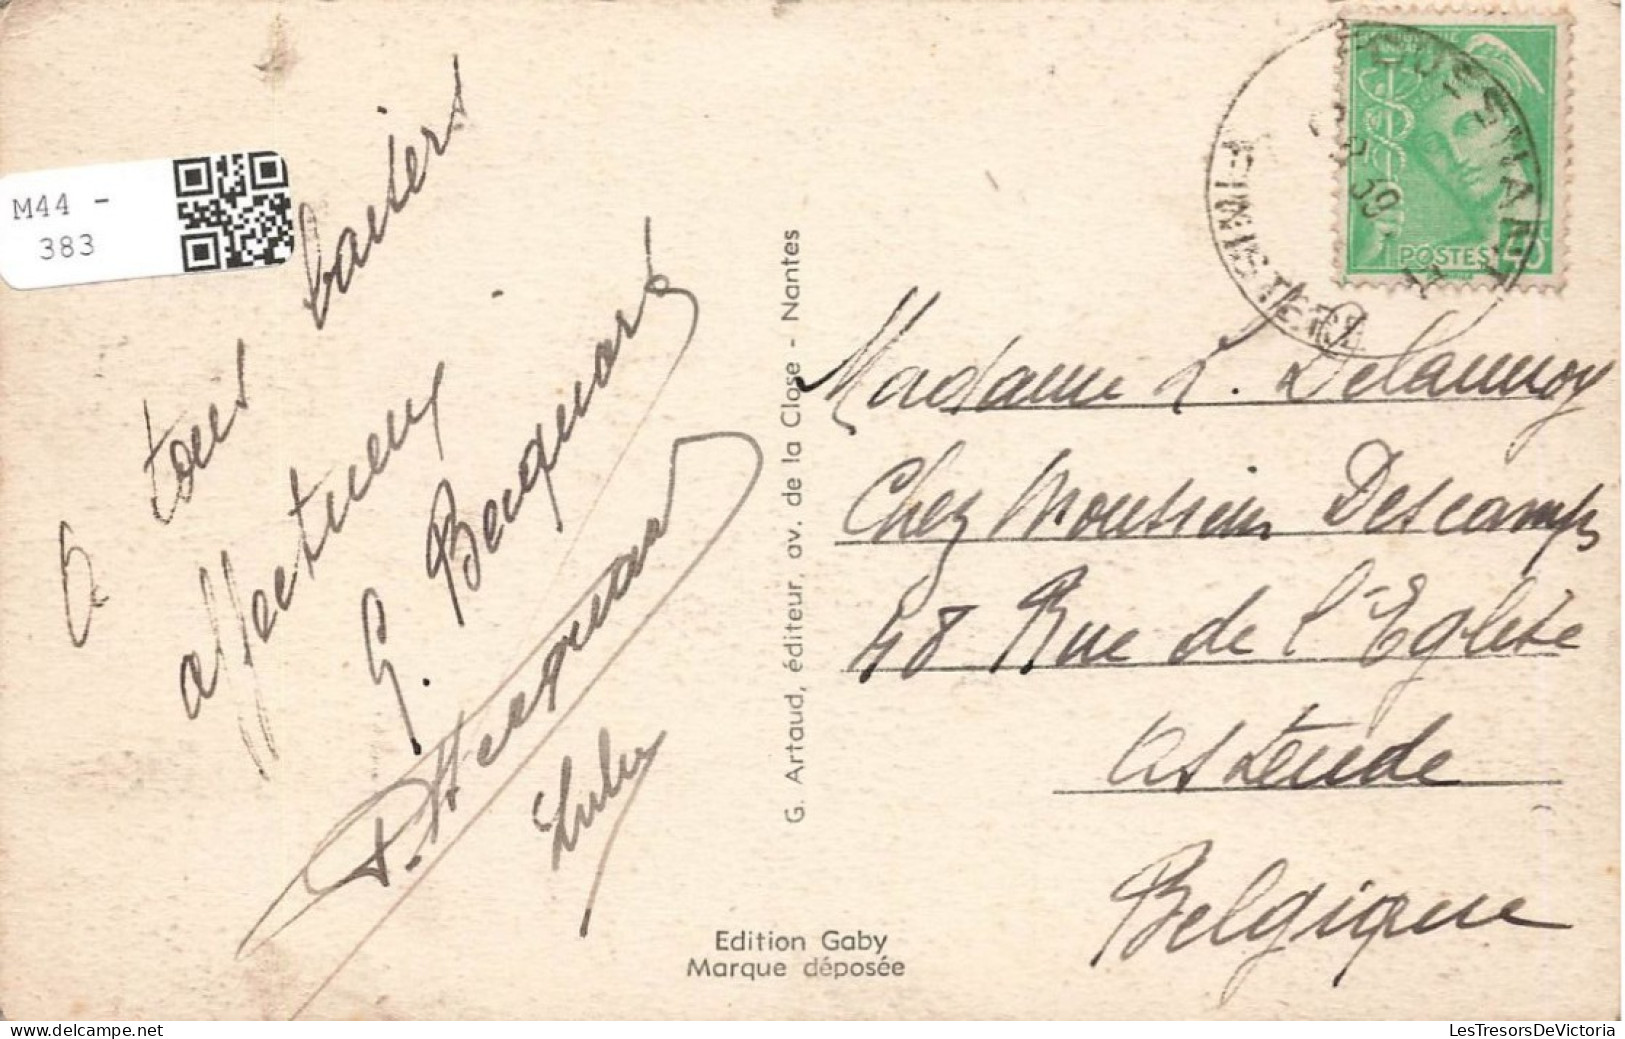 M44 -
383
A tous baisers
affectueux
G. Becquart
Luly
G. Artaud, éditeur, av. de la Close - Nantes
Edition Gaby
Marque déposée
FINISTERE
POSTES
Madame L. Delaunoy
Chez Monsieur Descamps
48 Rue de l'Eglise
Ostende
Belgique
LesTresorsDeVictoria.com